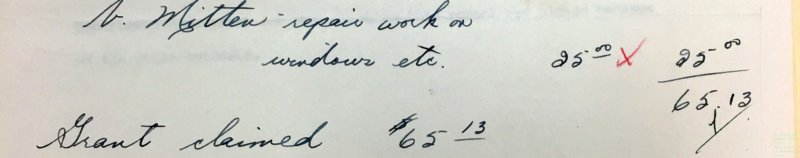 V. Mitten - repair work on
windows etc. 25 00 X 25 00
65.13
Grant claimed $65 13